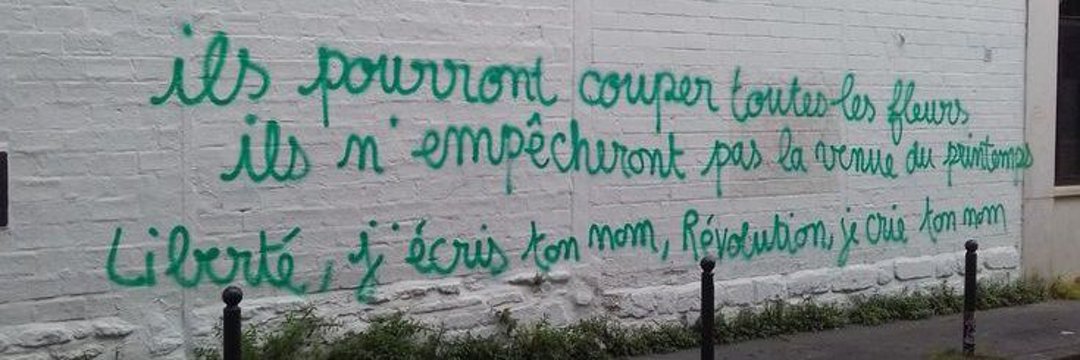 ils pourront couper toutes les fleurs
ils n'empêcheront pas la venue du printemps
Liberté, j'écris ton nom, Révolution, je crie ton nom